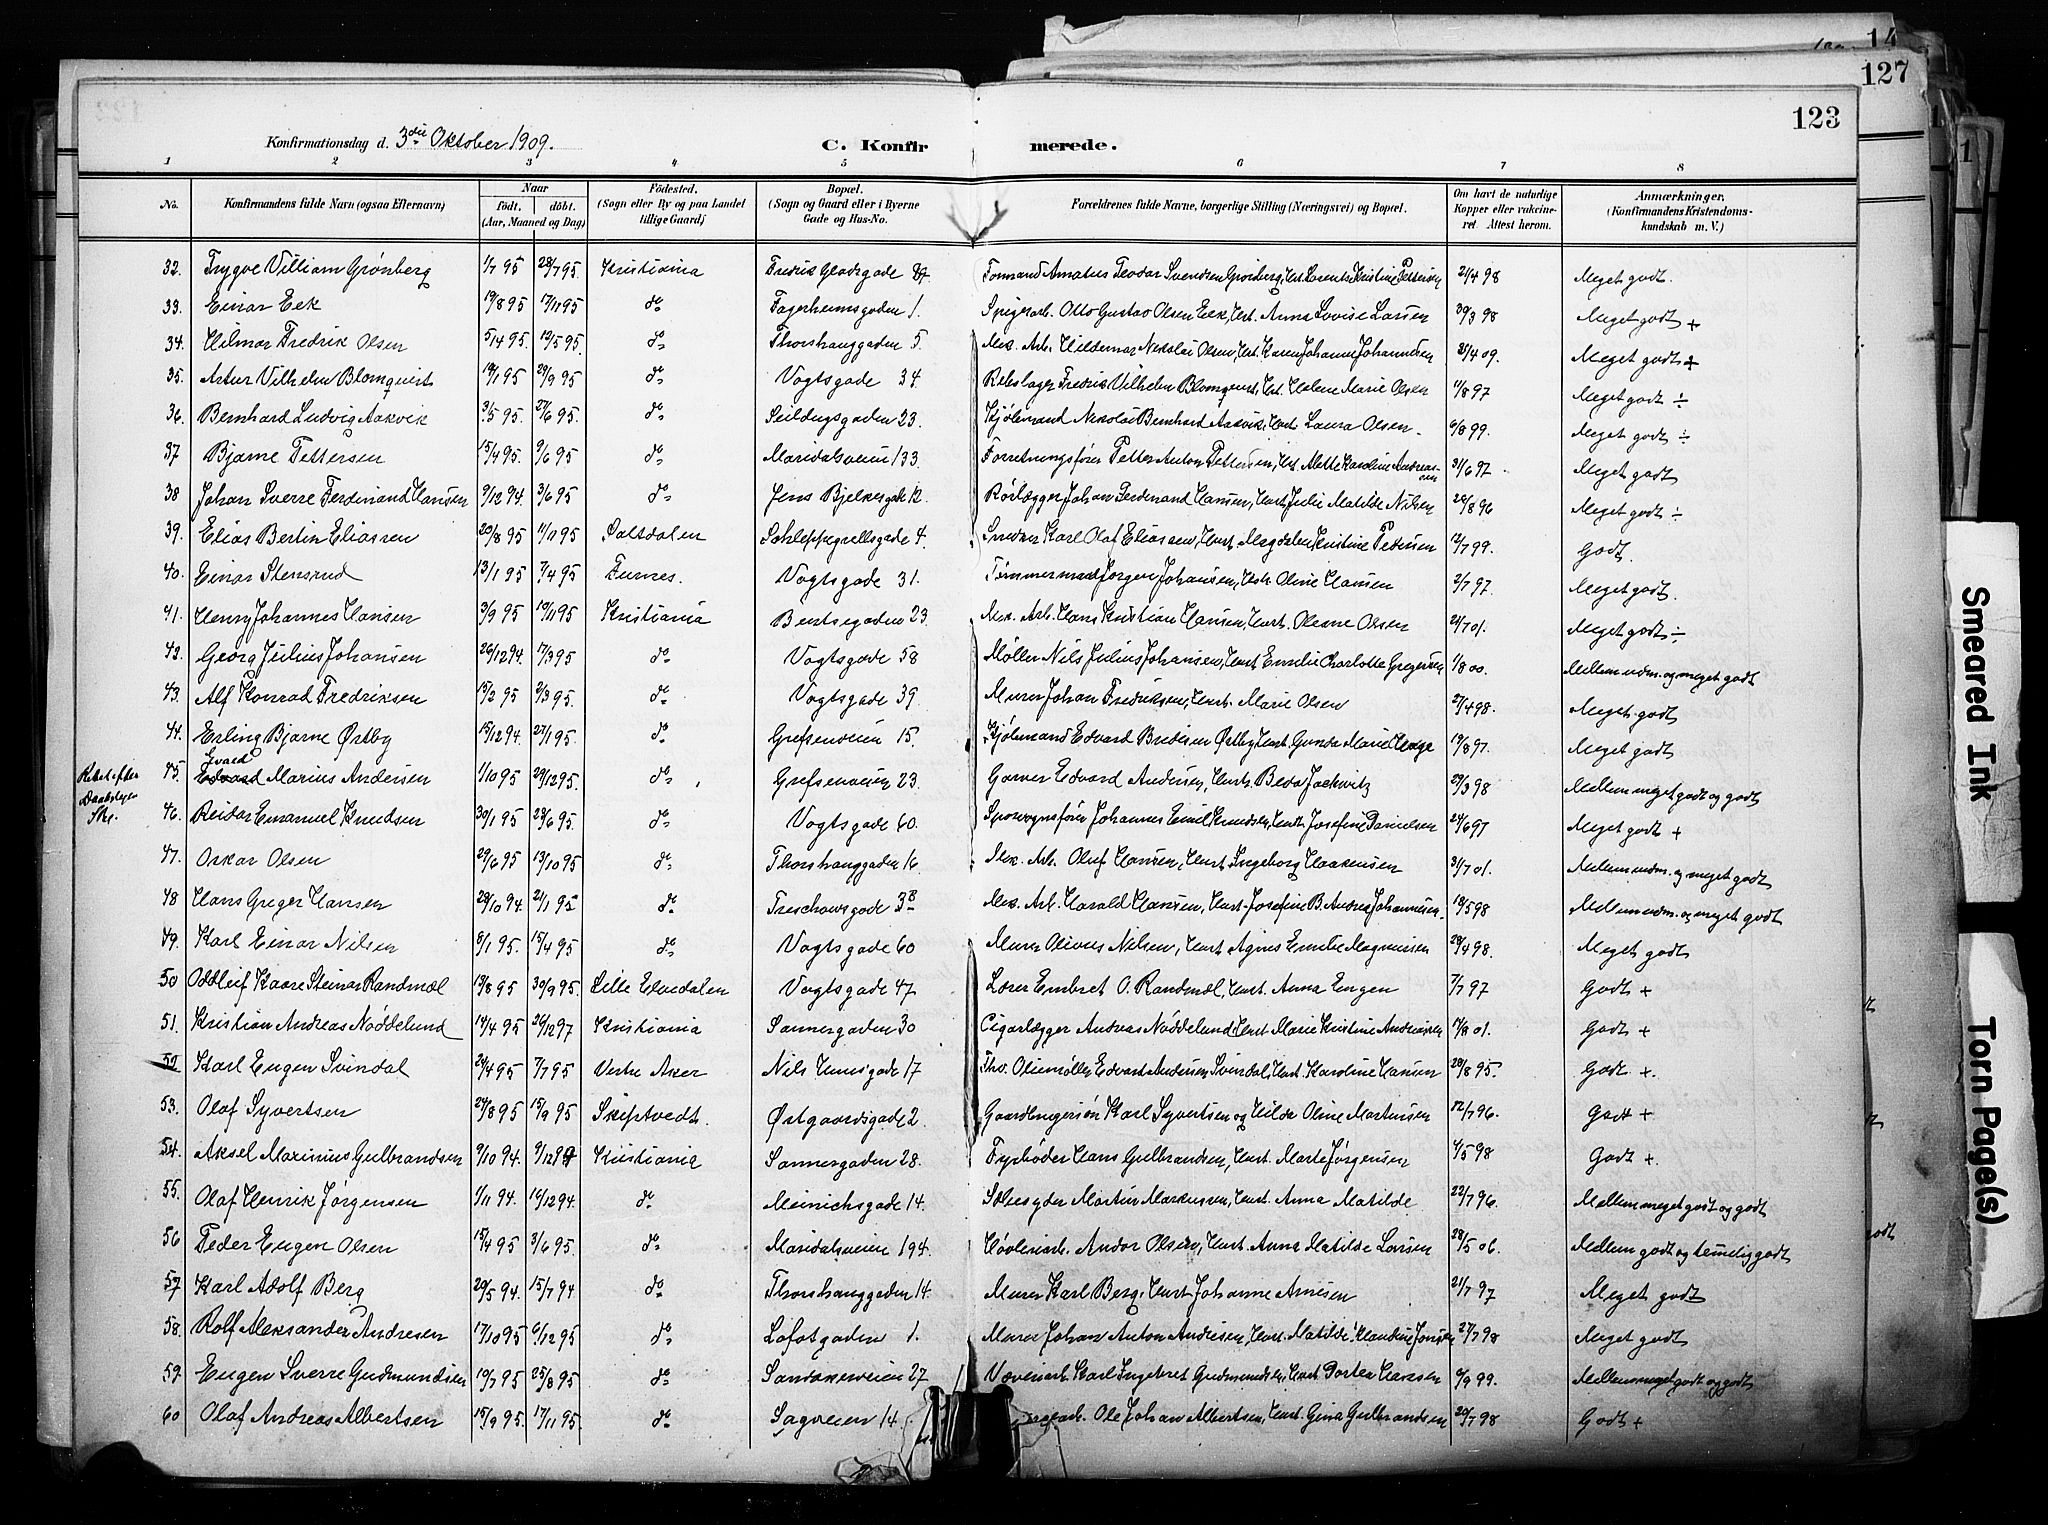 14
127
123
Konfirmationsdag d. 3die Oktober 1909.
C. Konfir merede.
1 2 3 4 5 6 7 8
No. Konfirmandens fulde Navn (ogsaa Efternavn) Naar født, døbt. (Aar, Maaned og Dag) Fødested. (Sogn eller By og paa Landet tillige Gaard) Bopæl. (Sogn og Gaard eller i Byerne Gade og Hus-No. Forældrenes fulde Navne, borgerlige Stilling (Næringsvei) og Bopæl. Om havt de naturlige Kopper eller vakcineret Attest herom. Anmærkninger. (Konfirmandens Kristendomskundskab m. V.)
32. Trygve Villiam Grønberg 1/7 95 28/7 95. Kristiania Fredrik Gladsgade Formand Amatus Teodor Svendsen Grønberg, Hust. Laurentze Kristine Pettersen 21/4 98 Meget godt.
33. Einar Eek 19/8 95 17/11 95 do Fagerheimsgaden 1. Spigerarb. Otto Gustav Olsen Eek, Hust. Anna Lovise Larsen 30/3 98 Meget godt +
34. Hilmar Fredrik Olsen 5/4 95. 12/5 95. do Thorshauggaden 5. Mek. Arb. Hildemar Nikolai Olsen, Hust. Karen Johanne Johannesen 21/4 09. Meget godt +
35. Artur Vilhelm Blomqvist 19/1 95 29/9 95 do Vogtsgade 34. Rebslager Fredrik Vilhelm Blomqvist, Hust. Helene Marie Olsen 11/8 97 Meget godt ÷
36. Bernhard Ludvig Aakvik 3/5 95. 27/6 95. do Seildugsgaden 23. Kjøbmand Nikolai Bernhard Aakvik, Hust. Laura Olsen. 6/8 99. Meget godt ÷
37 Bjarne Pettersen 15/4 95. 9/6 95 do Maridalsveien 133. Forretningsfører Petter Anton Pettersen, Hust. Alette Karoline Andreassen 31/6 97. Meget godt
38 Johan Sverre Ferdinand Hansen 9/12 94. 3/6 95 do Jens Bjelkesgade 12. Rørlægger Johan Ferdinand Hansen, Hust. Julie Matilde Nilsen 26/8 96 Meget godt ÷
39. Elias Bertin Eliassen 20/8 95 11/11 95 Saltdalen Schleppegrellsgade 4. Snedker Karl Olaf Eliassen, Hust. Magdalene Kristine Pedersen 12/7 99. Godt.
40. Einar Stensrud 13/1 95 7/4 95 Furnes. Vogtsgade 31. Tømmermand Jørgen Johansen, Hust. Oline Hansen 2/7 97. Meget godt.
41. Henry Johannes Hansen 3/9 95 10/11 95 Kristiania Bentsegaden 23. Mek. Arb. Hans Kristian Hansen, Hust. Oleane Olsen 21/7 01. Meget godt ÷
42. Georg Julius Johansen 26/12 94. 17/3 95 do Vogtsgade 58 Møller Nils Julius Johansen, Hust. Emilie Charlotte Gregersen 1/8 00. Mellem udm. og meget godt
43. Alf Konrad Fredriksen 15/2 95 3/3 95. do Vogtsgade 39 Murer Johan Fredriksen, Hust. Marie Olsen 27/4 98. Meget godt
44. Erling Bjarne Østby 15/12 94. 27/1 95. do Grefsenveien 15. Kjøbmand Edvard Bredesen Østby, Hust. Gunda Marie Hauge 19/8 97. Meget godt
Rettet efter Daabsbogen Skr.
45. Edvard Ivard Marius Andersen 1/10 95 29/12 95. do Grefsenveien 23. Garver Edvard Andersen, Hust. Beda Jackwitz 29/3 98 Mellem meget godt og godt
46. Reidar Emanuel Knudsen 30/1 95 23/6 95. do Vogtsgade 60. Sporvognsfører Johannes Emil Knudsen, Hust. Josefine Danielsen 24/6 97 Meget godt +
47. Oskar Olsen 29/6 95 13/10 95 do Thorshauggaden 16. Mek. Arb. Oluf Hansen, Hust. Ingeborg Haakensen 31/7 01. Mellem udm. og meget godt
48 Hans Greger Hansen 28/10 94. 21/1 95 do Treschowsgade 3B Mek. Arb. Harald Hansen, Hust. Josefine B. Andrea Johannesen. 18/5 98 Mellem udm. og meget godt
49. Karl Einar Nilsen 8/1 95. 15/4 95 do Vogtsgade 60 Murer Olivius Nilsen, Hust. Agnes Emilie Magnussen 28/4 98. Meget godt
50 Oddleif Kaare Steinar Randmæl 19/8 95 30/9 95. Lille Elvedalen Vogtsgade 47 Lærer Embret O. Randmæl, Hust. Anna Engen 7/7 97 Godt +
51. Kristian Andreas Nøddelund 14/4 95 26/12 97 Kristiania Sannergaden 30 Cigarlægger Andreas Nøddelund, Hust. Marie Kristine Andreasen 17/8 01. Godt +
52. Karl Eugen Svindal 24/4 95 7/7 95 Vestre Aker Nils Huusgade 17 Fhv. Oliemøller Edvart Andersen Svindal, Hust. Karoline Hansen 28/8 95. Godt +.
53. Olaf Syvertsen 24/8 95 15/9 95 Skiptvedt. Østgaardsgade 2. Gaardbrugersøn Karl Syvertsen og Hilda Oline Martinsen 12/7 96. Godt +
54. Aksel Marinius Gulbrandsen 9/10 94. 9/12 94 Kristiania Sannergaden 28. Fyrbøder Hans Gulbrandsen, Hust. Marte Jørgensen 4/5 98 Godt +.
55. Olaf Henrik Jørgensen 1/11 94. 16/12 94. do Meinichsgade 14. Skibsgder Martin Markussen, Hust. Anna Matilde 22/7 96. Mellem meget godt og godt
56 Peder Eugen Olsen 15/4 95 3/6 95. do Maridalsveien 194. Høvleriarb. Andor Olsen, Hust. Anna Matilde Larsen 28/5 06. Mellem godt og temelig godt
57 Karl Adolf Berg 20/5 94. 15/7 94 do Thorshauggaden 14. Murer Karl Berg, Hust. Johanne Arnesen 21/7 97 Meget godt
58. Rolf Aleksander Andresen 17/10 95 6/12 95 do Lofotgaden 1. Murer Johan Anton Andresen, Hust. Matilde Klaudine Jonsen 27/7 98 Meget godt
59. Eugen Sverre Gudmundsen 19/7 95 25/8 95 do Sandakerveien 27 Væveriarb. Karl Ingebret Gudmundsen, Hust. Dortea Hansen 6/9 99. Mellem meget godt og godt
60 Olaf Andreas Albertsen 15/9 95. 17/11 95. do Sagveien 14. Ole Johan Albertsen, Hust. Gina Gulbrandsen 20/7 98 Godt +
godt
Smeared Ink
Torn Page(s)